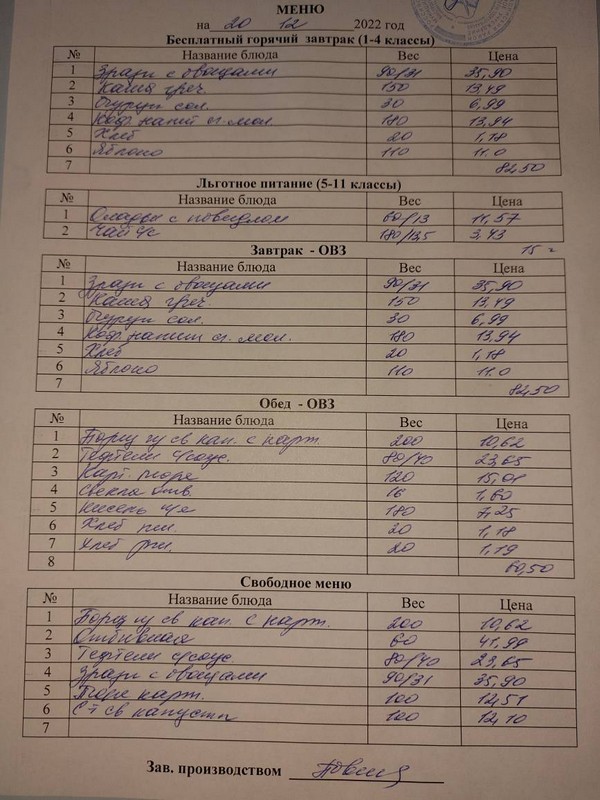 МЕНЮ
на 20 12 2022 год
Бесплатный горячий завтрак (1-4 классы)
№ Название блюда Вес Цена
1 Зразы с овощами 90/31 35,90
2 Каша греч. 150 13,49
3 Огурцы сол. 30 6,99
4 Коф. напит сг. мол. 180 13,94
5 Хлеб 20 1,18
6 Яблоко 110 11.0
7 82,50
Льготное питание (5-11 классы)
№ Название блюда Вес Цена
1 Оладьи с повидлом 60/13 11,57
2 Чай с/с 180/13,5 3,43
15 =
Завтрак - ОВЗ
№ Название блюда Вес Цена
1 Зразы с овощами 90/31 35,90
2 Каша греч. 150 13,49
3 Огурцы сол. 30 6,99
4 Коф. напит сг. мол. 180 13,94
5 Хлеб 20 1,18
6 Яблоко 110 11.0
7 82,50
Обед - ОВЗ
№ Название блюда Вес Цена
1 Борщ из св кап. с карт. 200 10,62
2 Тефтели с/соус. 80/40 23,65
3 Карт. пюре 120 15,01
4 Свекла отв. 16 1,60
5 Кисель 180 7,25
6 Хлеб пш. 20 1,18
7 Хлеб рж. 20 1,19
8 60,50
Свободное меню
№ Название блюда Вес Цена
1 Борщ из св кап. с карт. 200 10,62
2 Отбивная 60 41,99
3 Тефтели с/соус. 80/40 23,65
4 Зразы с овощами 90/31 35,90
5 Пюре карт. 100 12,51
6 С-т св капусты 100 12,10
7
Зав. производством